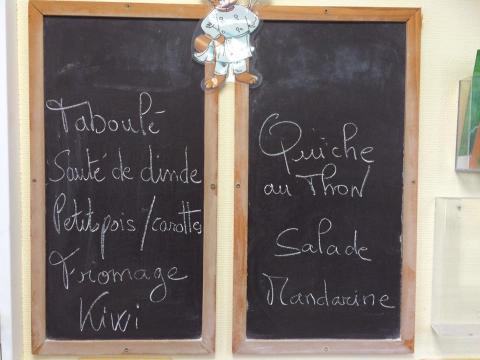 Taboulé
Sauté de dinde
Petit pois / carottes
Fromage
Kiwi
Quiche
au Thon
Salade
Mandarine